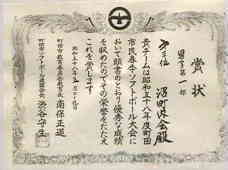 賞状
男子第一部
第三位
沼町内会殿
貴チームは昭和五十八年度町田
市民春季ソフトボール大会に
おいて頭書のとおり優秀な成績
を収めたのでその栄誉をたたえ
これを賞します
昭和五十八年
町田市教育委員会教育長 南保正道
町田市ソフトボール連盟会長 渋谷守生